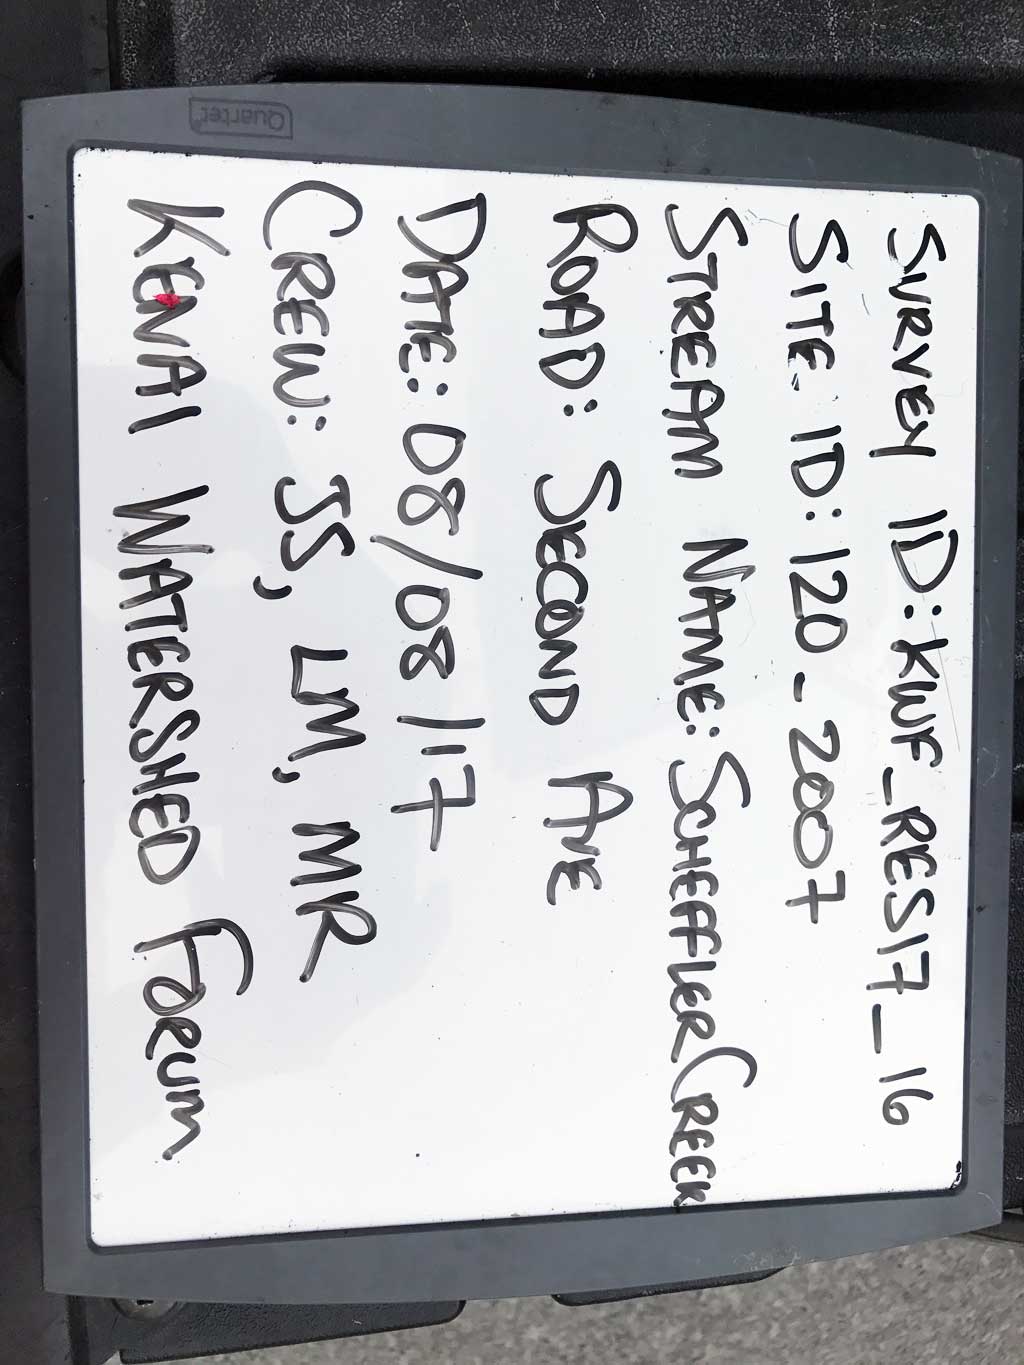 SURVEY ID: KWF_RES17_16
SITE ID: 120-2007
STREAM NAME: SCHEFFLER CREEK
ROAD: SECOND AVE
DATE: 08/08/17
CREW: JS, LM, MR
KENAI WATERSHED FORUM
Quartet